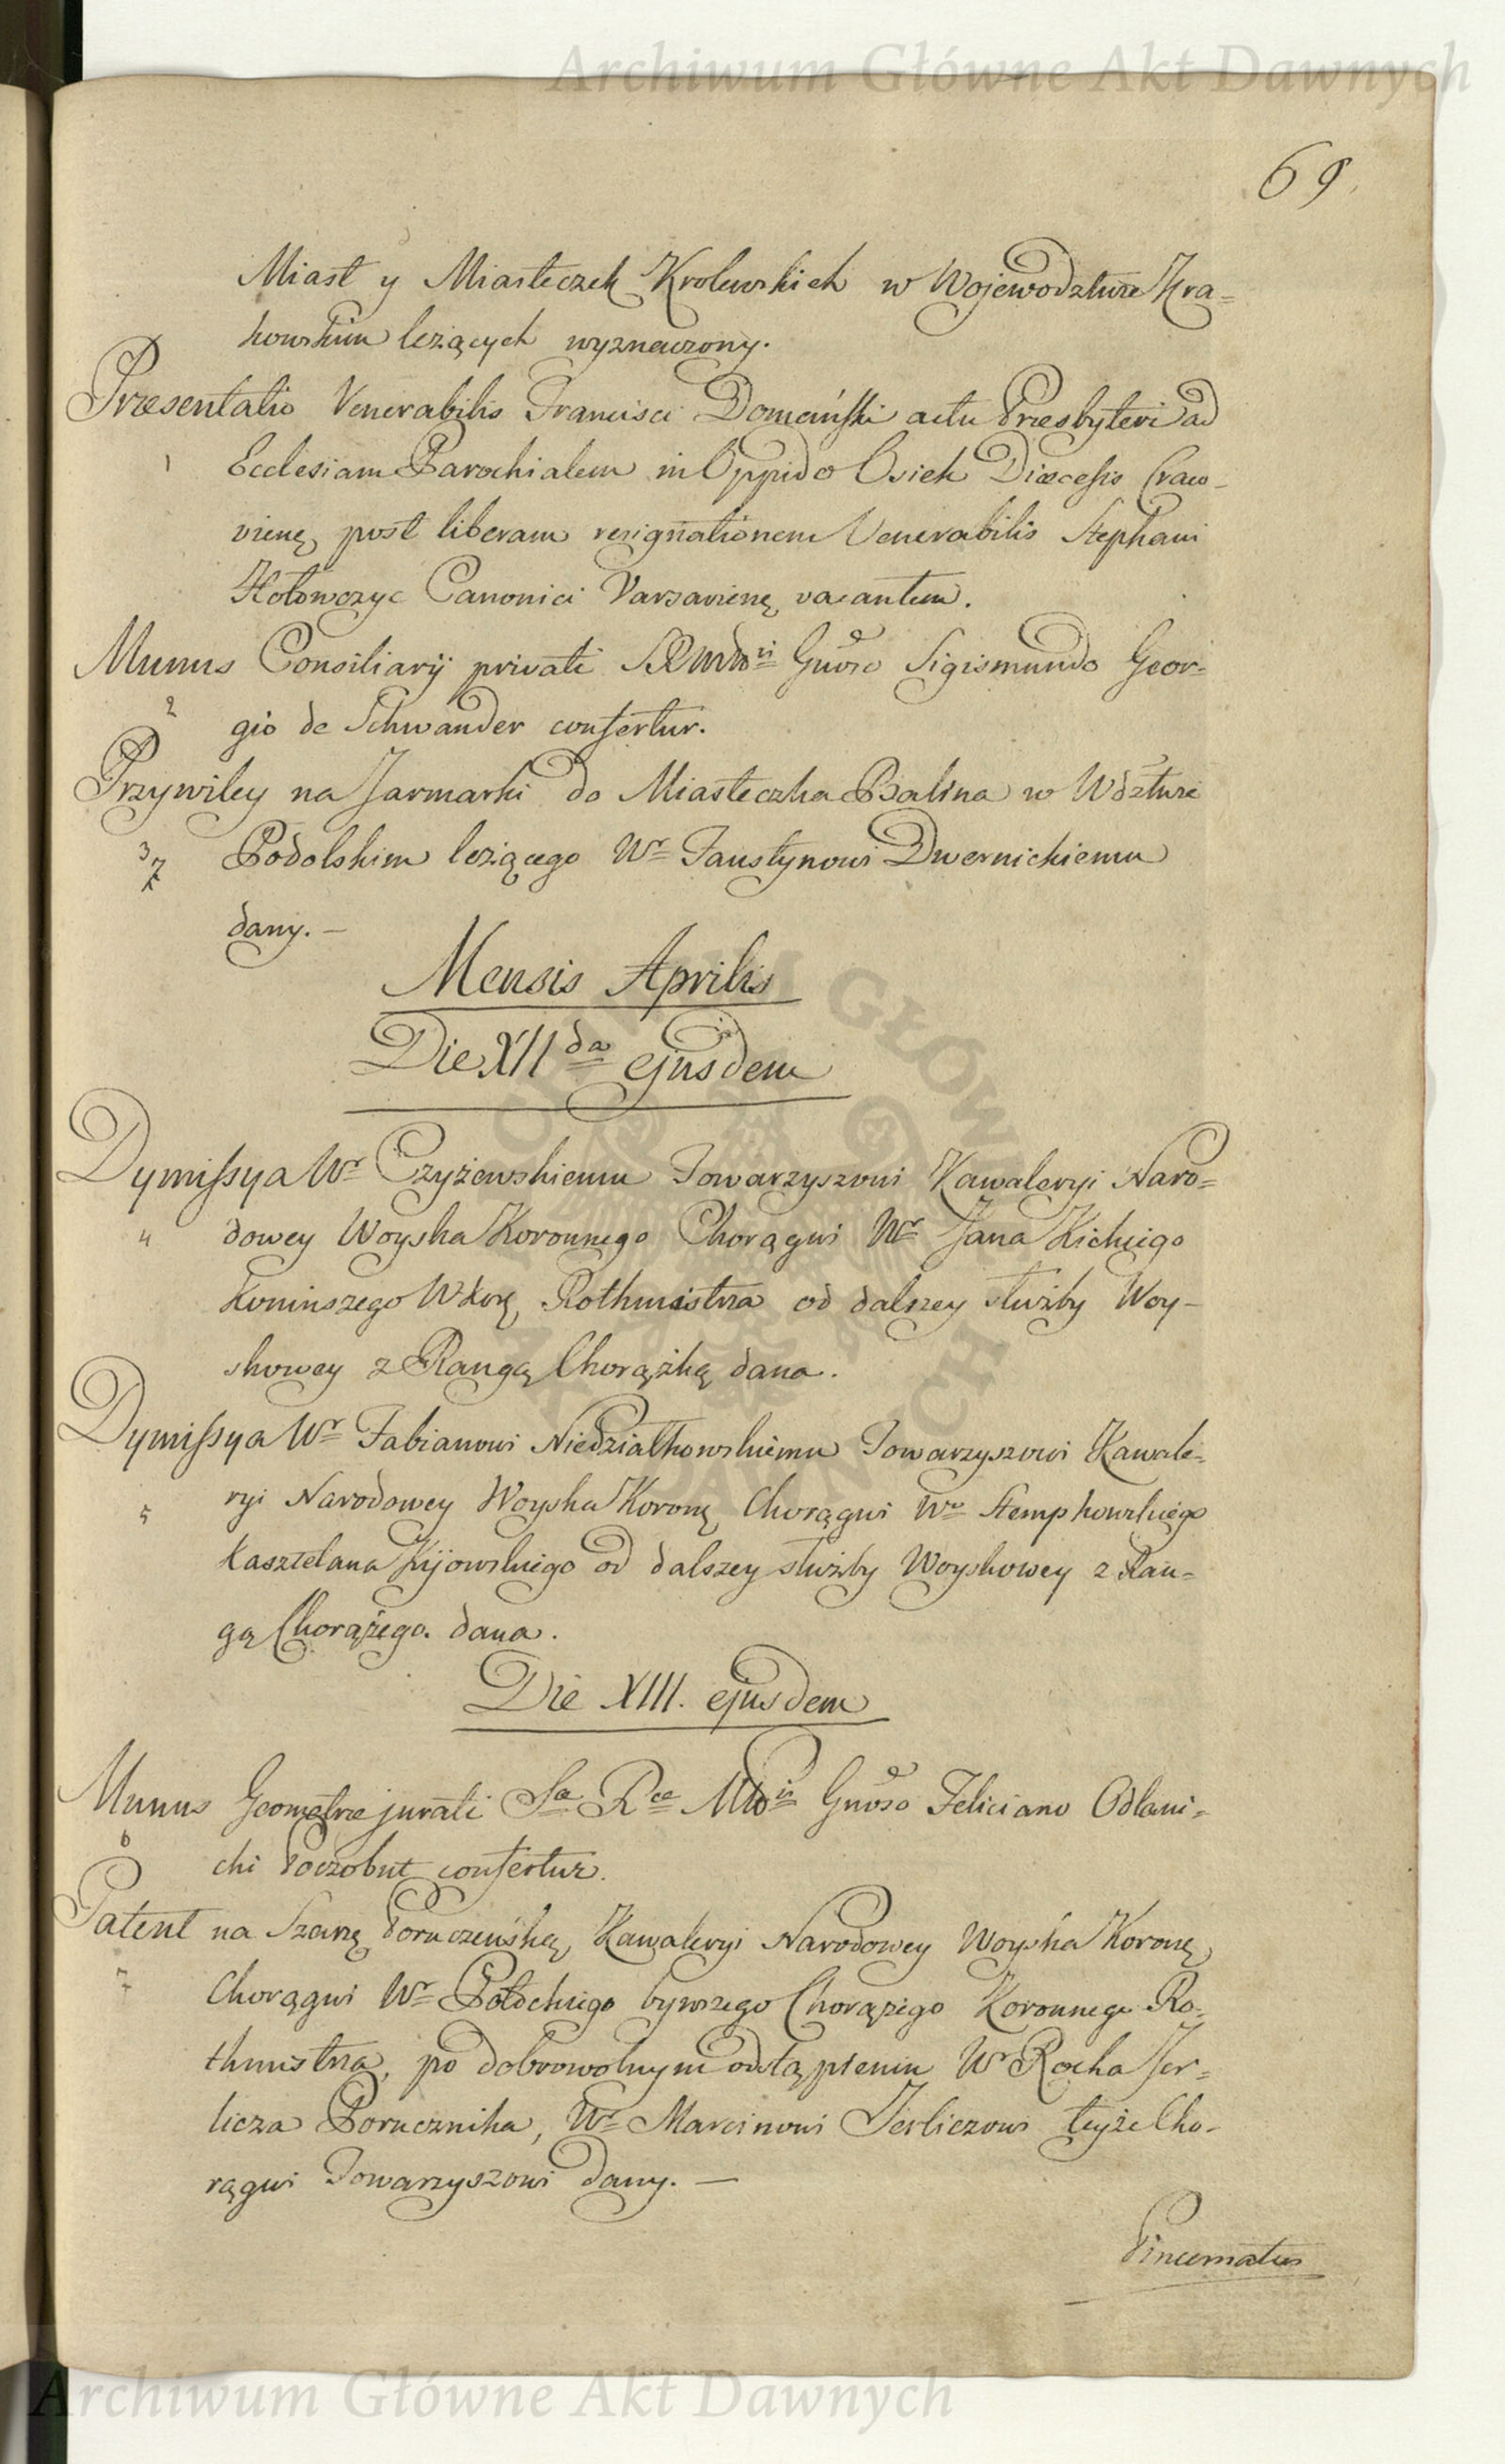 Archiwum Główne Akt Dawnych
69.
Miast y Miasteczek Krolewskich w Wojewodztwie Kra=
kowskim leżących wyznaczony.
Præsentatio Venerabilis Francisci Domański actu Præsbyteri ad
1 Ecclesiam Parochialem in Oppido Osiek Diœcesis Craco-
vienę post liberam resignationem Venerabilis Stephani
Hołowczyc Canonici Varsavienę vacantem.
Munus Consiliarij privati Gnoso Sigismundo Geor=
2 gio de Schwander confertur.
Przywiley na Jarmarki do Miasteczka Balina w Wdztwie
3 Podolskim leżącego Wr Faustynowi Dwernickiemu
dany. —
Mensis Aprilis
Die XIIda ejusdem
Dymissya Wr Czyżewskiemu Towarzyszowi Kawaleryi Naro=
4 dowey Woyska Koronnego Chorągwi Wr Jana Kickiego
Koniuszego WKorę Rothmistrza od dalszey służby Woy-
skowey z Rangą Chorążką dana.
Dymissya Wr Fabianowi Niedziałkowskiemu Towarzyszowi Kawale=
5 ryi Narodowey Woyska Koronę Chorągwi Wo Stempkowskiego
Kasztelana Kijowskiego od dalszey służby Woyskowey z Ran=
gą Chorążego dana.
Die XIII. ejusdem
Munus Geometræ jurati Sæ Rce Mtis Gnoso Feliciano Odlani=
6 cki Poczobut confertur.
Patent na Szarżę Poruczeńską Kawaleryi Narodowey Woyska Koronę
7 Chorągwi Wr Potockiego bywszego Chorążego Koronnego Ro=
thmistrza, po dobrowolnym odstąpieniu Wr Rocha Jer=
licza Porucznika, Wr Marcinowi Jerliczowi teyże Cho-
rągwi Towarzyszowi dany. —
Pincernatus
Archiwum Główne Akt Dawnych